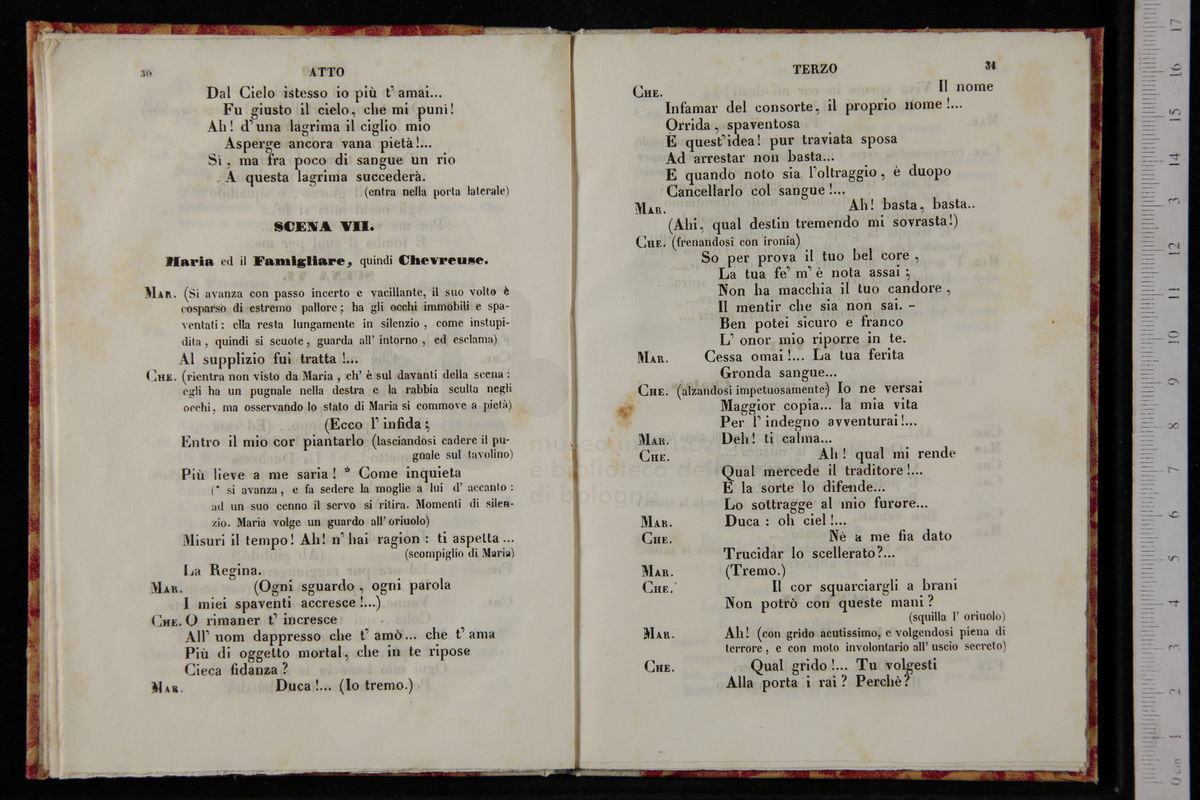 30
ATTO
Dal Cielo istesso io più t' amai...
Fu giusto il cielo, che mi punì!
Ah! d' una lagrima il ciglio mio
Asperge ancora vana pietà!...
Sì, ma fra poco di sangue un rio
A questa lagrima succederà.
(entra nella porta laterale)
SCENA VII.
Maria ed il Famigliare, quindi Chevreuse.
MAR. (Si avanza con passo incerto e vacillante, il suo volto è
cosparso di estremo pallore; ha gli occhi immobili e spa-
ventati: ella resta lungamente in silenzio, come instupi-
dita, quindi si scuote, guarda all' intorno, ed esclama)
Al supplizio fui tratta!...
CHE. (rientra non visto da Maria, ch' è sul davanti della scena:
egli ha un pugnale nella destra e la rabbia sculta negli
occhi, ma osservando lo stato di Maria si commove a pietà)
(Ecco l' infida;
Entro il mio cor piantarlo (lasciandosi cadere il pu-
gnale sul tavolino)
Più lieve a me saria! * Come inquieta
(* si avanza, e fa sedere la moglie a lui d' accanto:
ad un suo cenno il servo si ritira. Momenti di silen-
zio. Maria volge un guardo all' oriuolo)
Misuri il tempo! Ah! n' hai ragion: ti aspetta...
(scompiglio di Maria)
La Regina.
MAR. (Ogni sguardo, ogni parola
I miei spaventi accresce!...)
CHE. O rimaner t' incresce
All' uom dappresso che t' amò... che t' ama
Più di oggetto mortal, che in te ripose
Cieca fidanza?
MAR. Duca!... (Io tremo.)
TERZO
31
CHE. Il nome
Infamar del consorte, il proprio nome!...
Orrida, spaventosa
È quest' idea! pur traviata sposa
Ad arrestar non basta...
E quando noto sia l' oltraggio, è duopo
Cancellarlo col sangue!...
MAR. Ah! basta, basta..
(Ahi, qual destin tremendo mi sovrasta!)
CHE. (frenandosi con ironia)
So per prova il tuo bel core,
La tua fe' m' è nota assai;
Non ha macchia il tuo candore,
Il mentir che sia non sai. -
Ben potei sicuro e franco
L' onor mio riporre in te.
MAR. Cessa omai!... La tua ferita
Gronda sangue...
CHE. (alzandosi impetuosamente) Io ne versai
Maggior copia... la mia vita
Per l' indegno avventurai!...
MAR. Deh! ti calma...
CHE. Ah! qual mi rende
Qual mercede il traditore!...
E la sorte lo difende...
Lo sottragge al mio furore...
MAR. Duca: oh ciel!...
CHE. Nè a me fia dato
Trucidar lo scellerato?...
MAR. (Tremo.)
CHE. Il cor squarciargli a brani
Non potrò con queste mani?
(squilla l' oriuolo)
MAR. Ah! (con grido acutissimo, e volgendosi piena di
terrore, e con moto involontario all' uscio secreto)
CHE. Qual grido!... Tu volgesti
Alla porta i rai? Perchè?
museo in
e bibliote
di bologna
0 cm 1 2 3 4 5 6 7 8 9 10 11 12 13 14 15 16 17